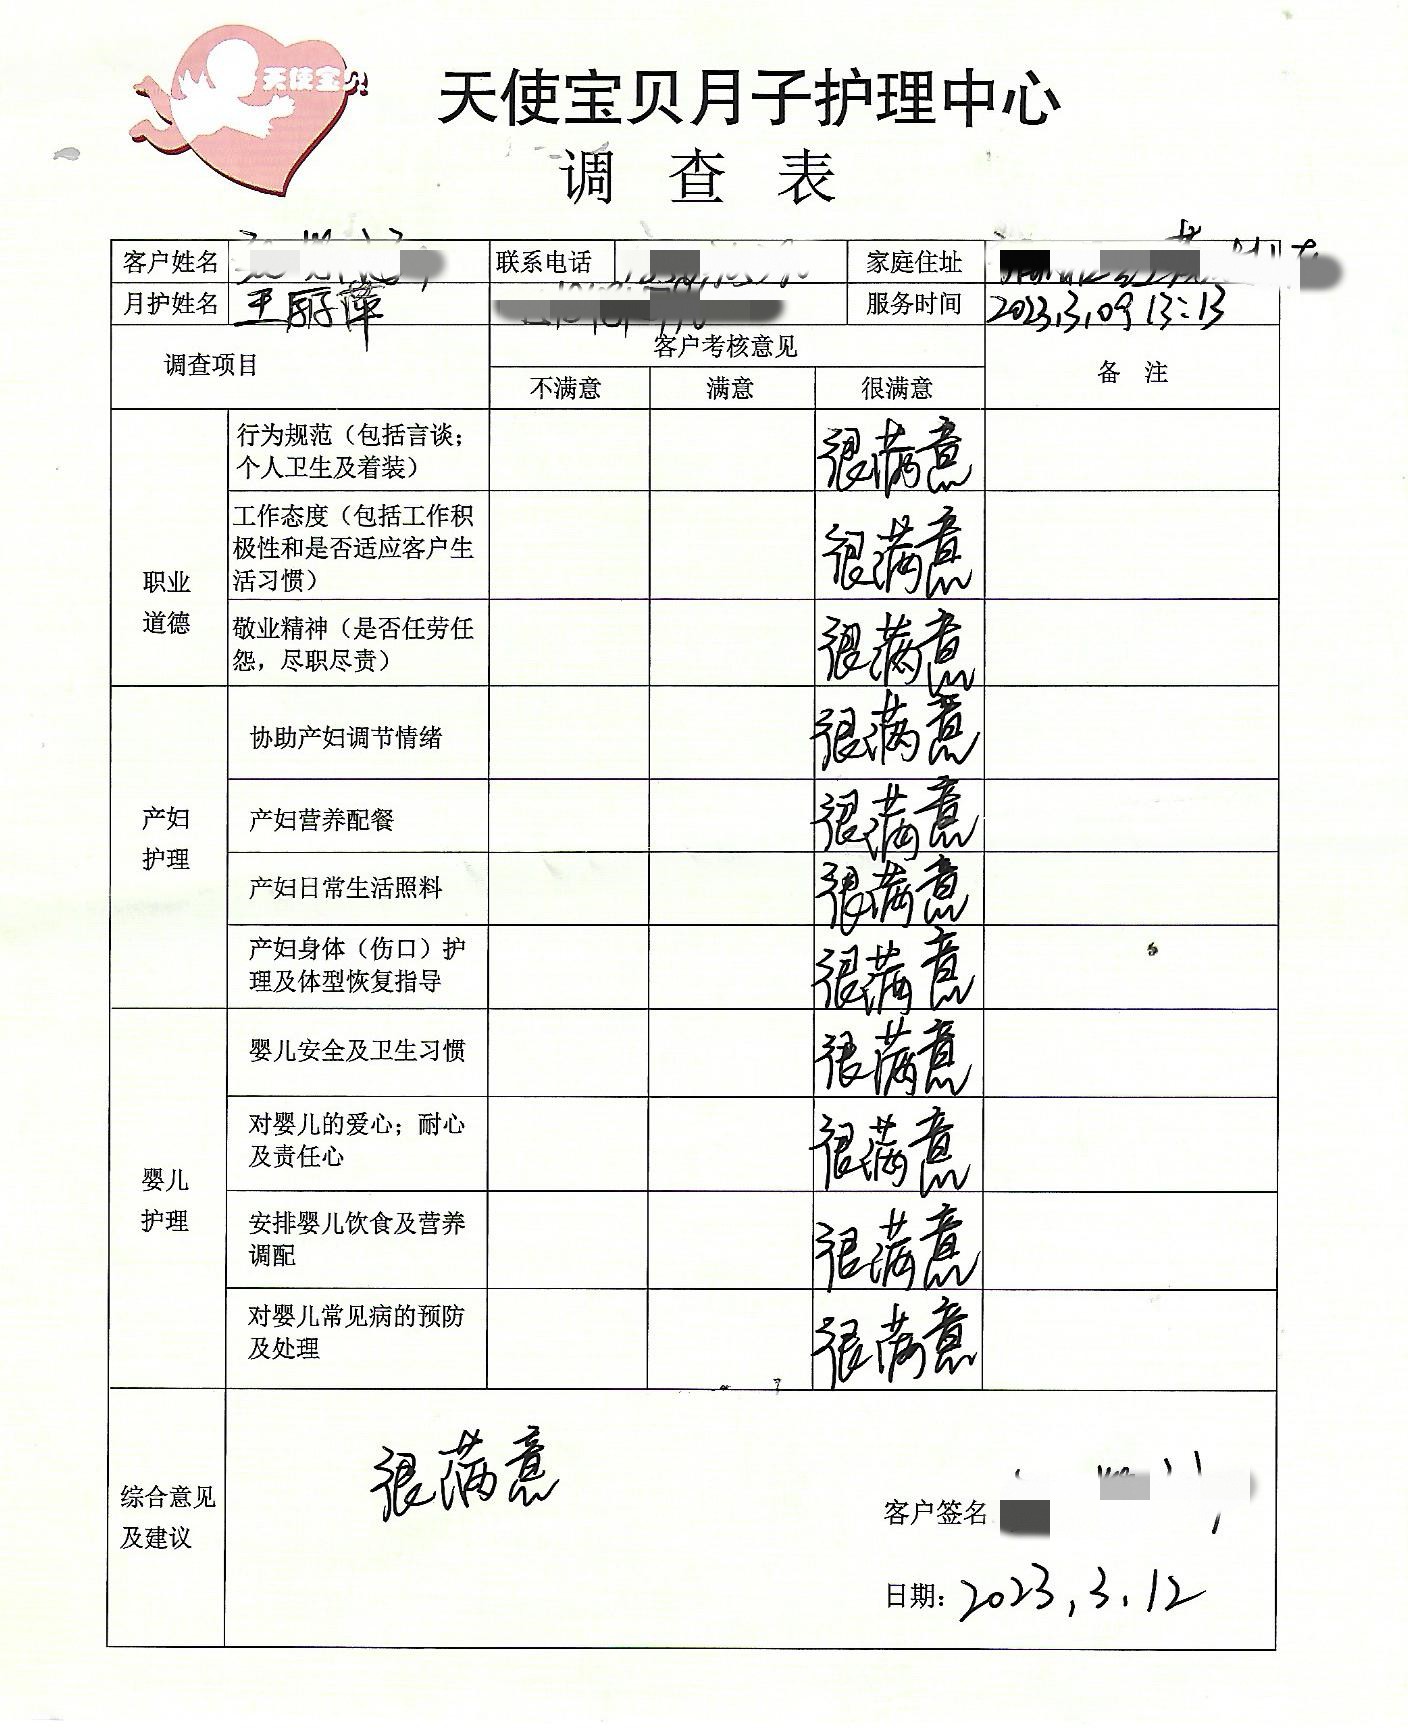 天使宝贝
天使宝贝月子护理中心
调查表
客户姓名 联系电话 家庭住址
月护姓名 王丽萍 服务时间 2023.3.09 13:13
调查项目 客户考核意见 备注
不满意 满意 很满意
职业
道德
行为规范（包括言谈；
个人卫生及着装） 很满意
工作态度（包括工作积
极性和是否适应客户生
活习惯） 很满意
敬业精神（是否任劳任
怨，尽职尽责） 很满意
产妇
护理
协助产妇调节情绪 很满意
产妇营养配餐 很满意
产妇日常生活照料 很满意
产妇身体（伤口）护
理及体型恢复指导 很满意
婴儿
护理
婴儿安全及卫生习惯 很满意
对婴儿的爱心；耐心
及责任心 很满意
安排婴儿饮食及营养
调配 很满意
对婴儿常见病的预防
及处理 很满意
综合意见
及建议
很满意
客户签名
日期：2023.3.12